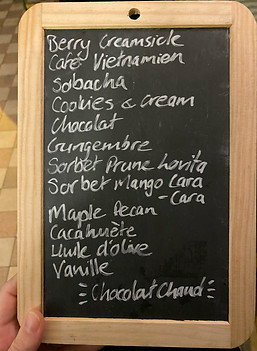 Berry Creamsicle
Café Vietnamien
Sobacha
Cookies & Cream
Chocolat
Gungembre
Sorbet Prune Lovita
Sorbet Mango Cara
-Cara
Maple Pecan
Cacahuète
Huile d'olive
Vanille
Chocolat Chaud